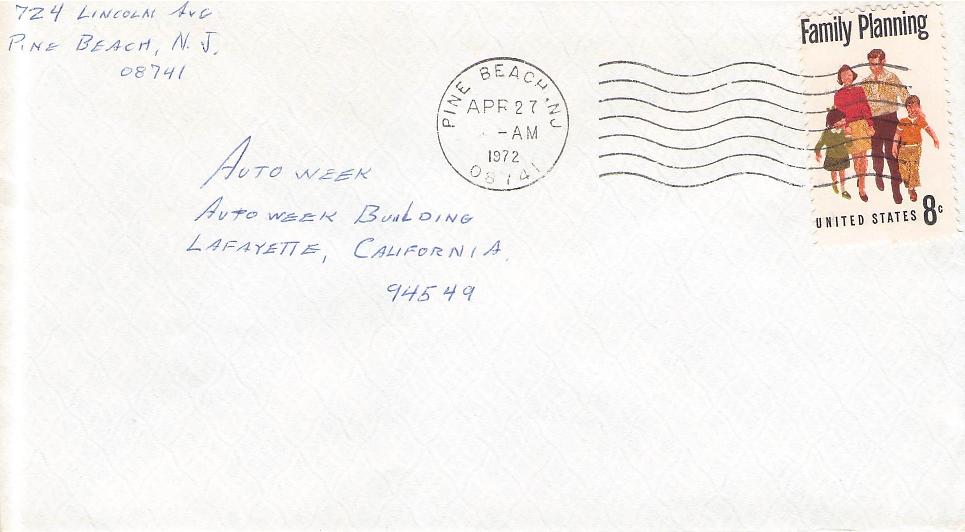 724 LINCOLN AVE
PINE BEACH, N.J.
08741
PINE BEACH, NJ
APR 27
-AM
1972
08741
Family Planning
UNITED STATES 8c
AUTOWEEK
AUTOWEEK BUILDING
LAFAYETTE, CALIFORNIA.
94549